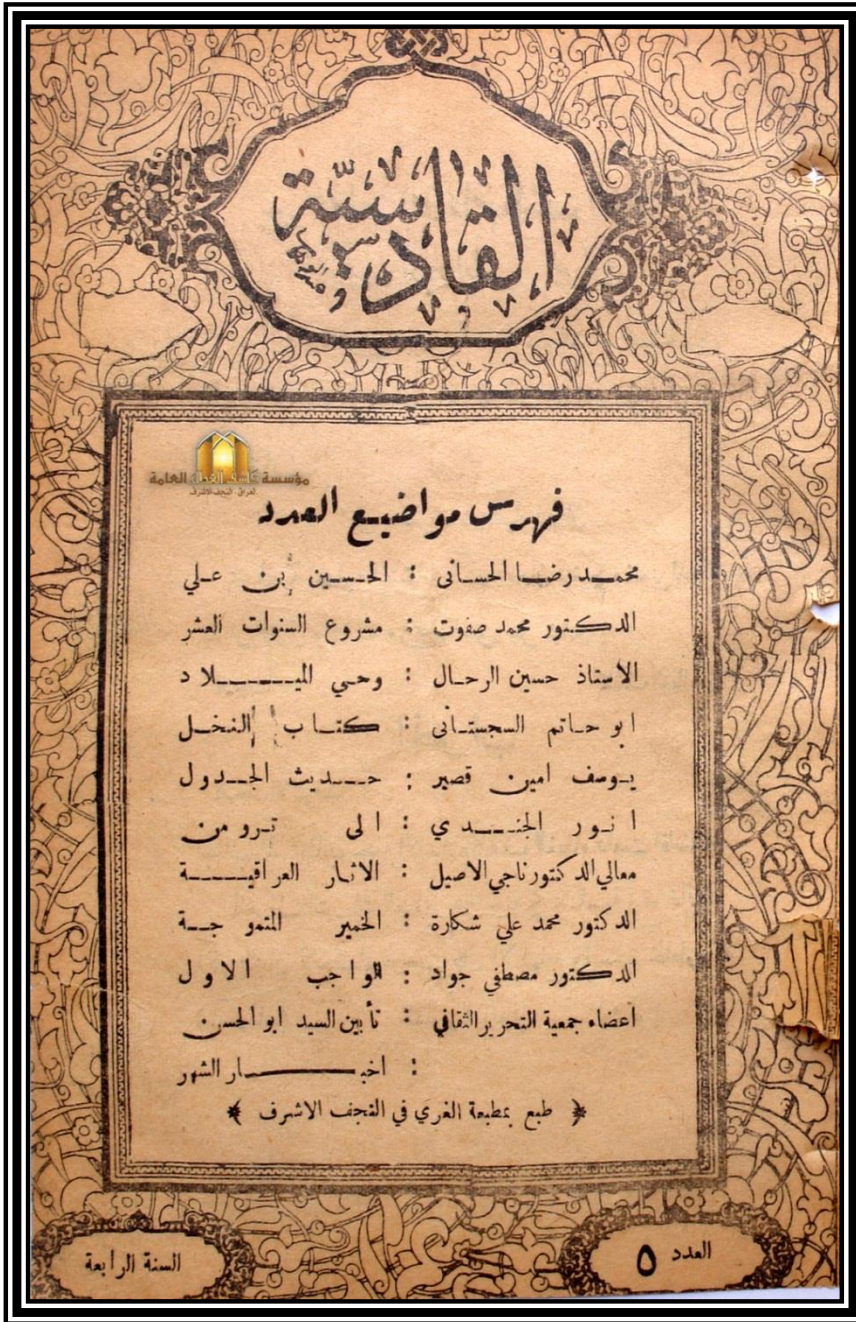 القادسية
مؤسسة كاشف الغطاء العامة
العراق - النجف الاشرف
فهرس مواضيع العدد
محمد رضا الحسانى : الحسين بن علي
الدكتور محمد صفوت : مشروع السنوات العشر
الاستاذ حسين الرحال : وحي الميلاد
ابو حاتم السجستانى : كتاب النخل
يوسف امين قصير : حديث الجدول
انور الجندي : الى ترومن
معالي الدكتور ناجي الاصيل : الاثار العراقية
الدكتور محمد علي شكارة : الخمير المتموجة
الدكتور مصطفى جواد : الواجب الاول
اعضاء جمعية التحرير الثقافي : تأبين السيد ابو الحسن
: اخبار الشهر
طبع بمطبعة الغري في النجف الاشرف
العدد ٥
السنة الرابعة